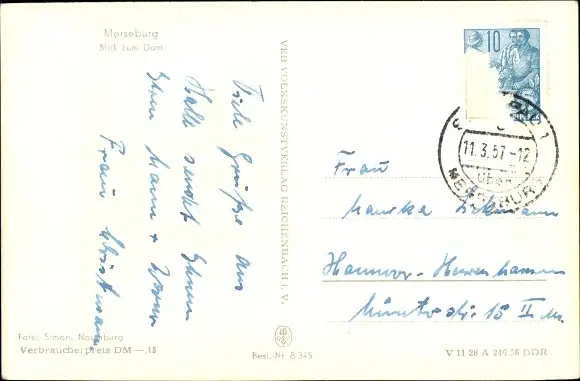 Merseburg
Blick zum Dom
Viele Grüße aus
Halle sendet Ihnen
Ihren Mann +
Frau
VEB VOLKSKUNSTVERLAG REICHENBACH i. V.
10
11.3.57-12
MERSEBURG
Frau
Hannover-Herrenhausen
15 II
Foto: Simon, Naumburg
Verbraucherpreis DM —,15
Best.-Nr. 8 345
V 11 28 A 246 56 DDR